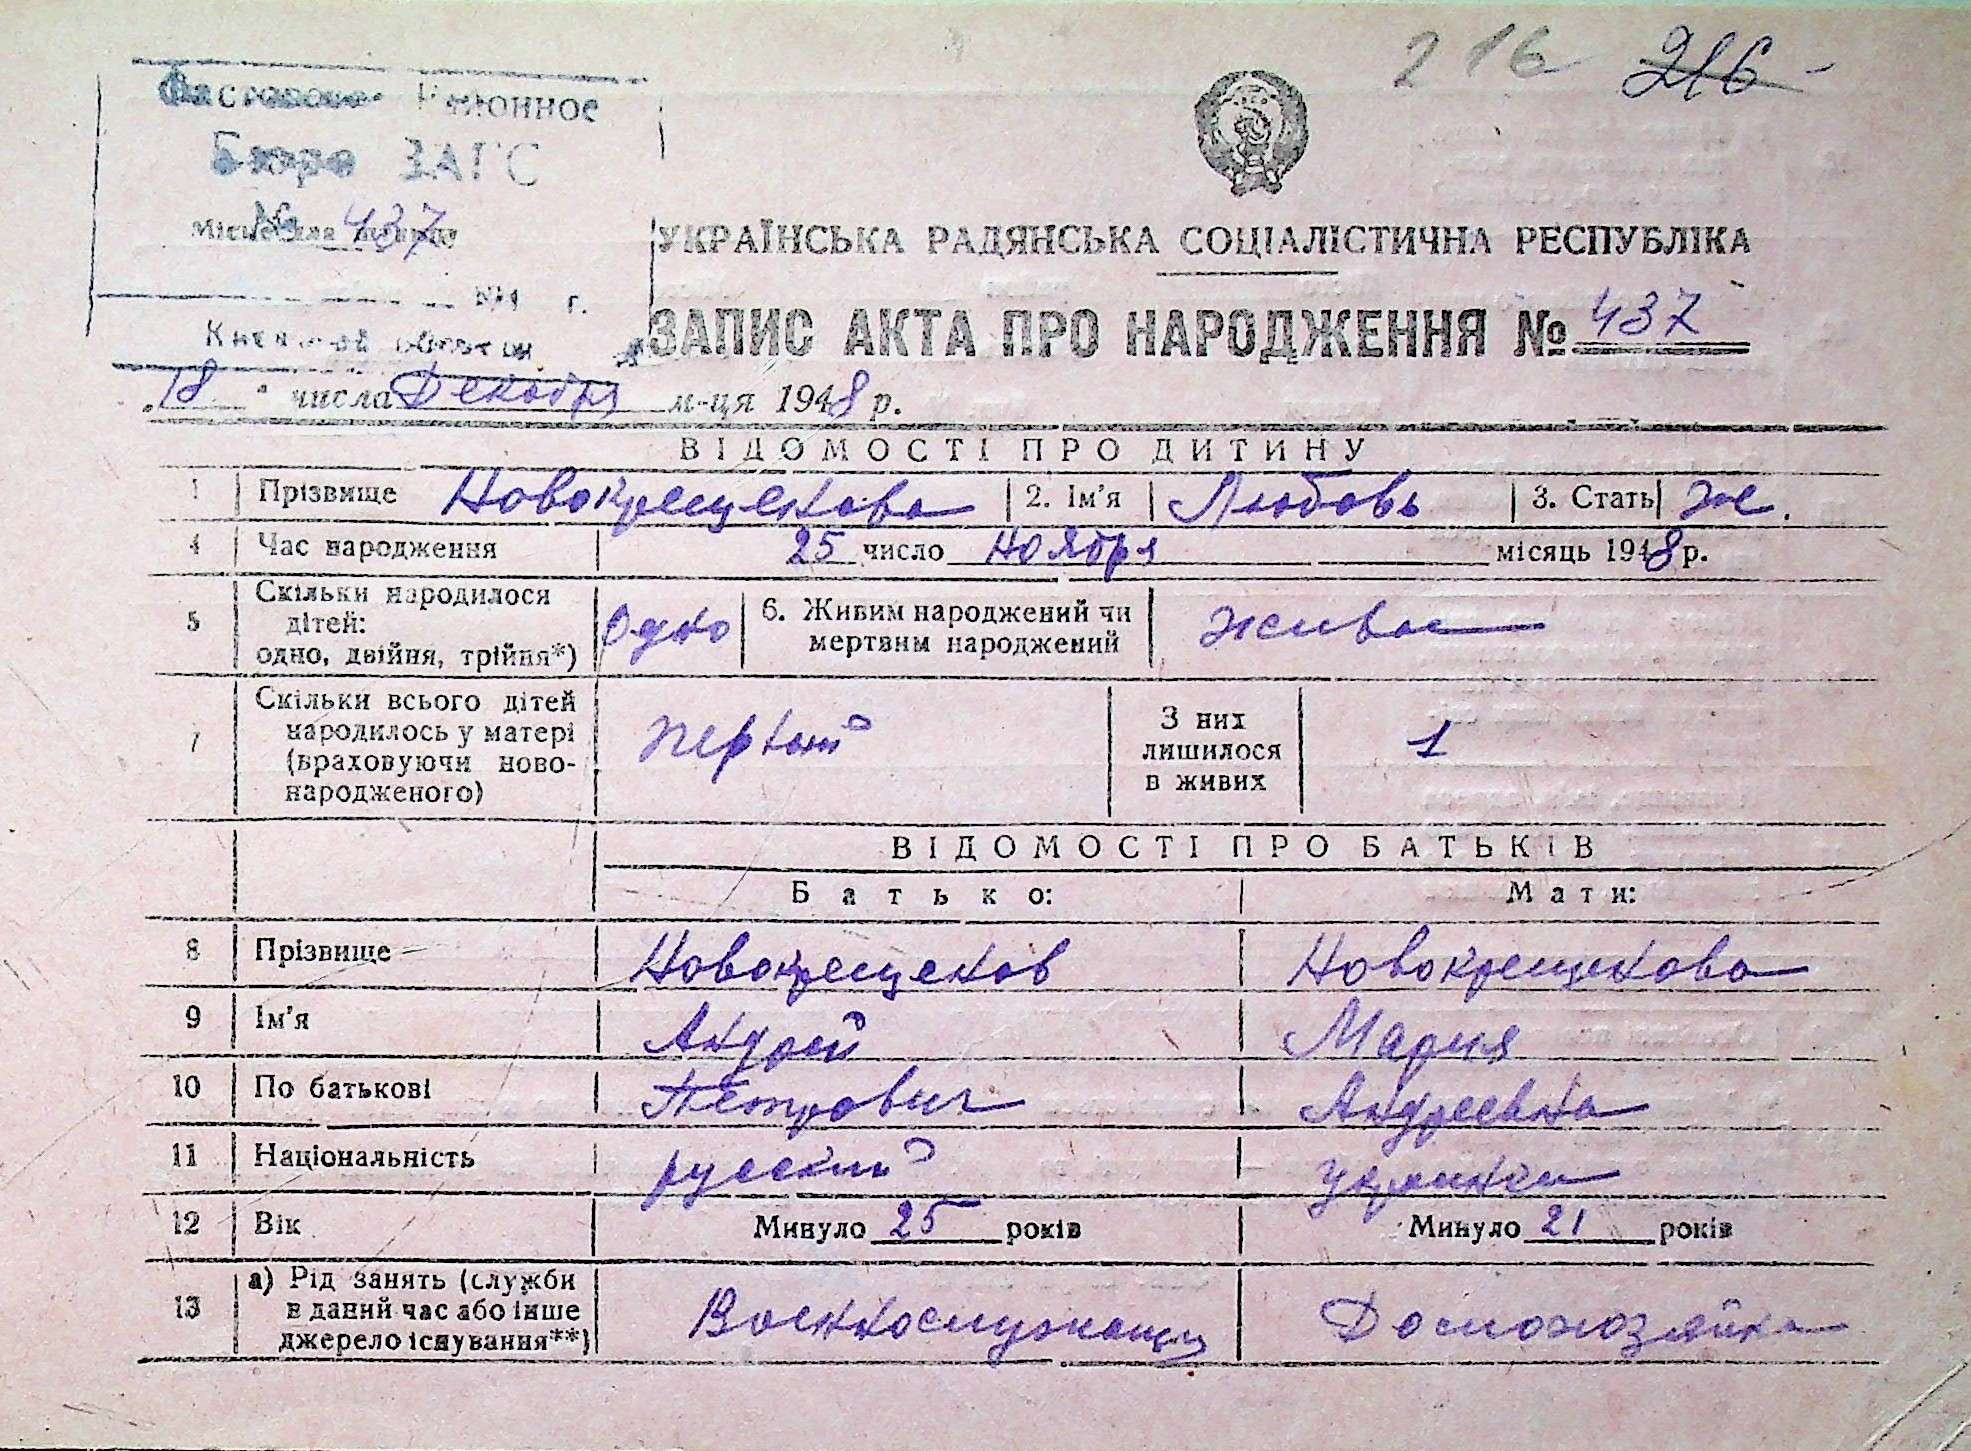 216 216
Фастовское Районное
Бюро ЗАГС
Місце для штампу
№ 437
г.
Киевской области
УКРАЇНСЬКА РАДЯНСЬКА СОЦІАЛІСТИЧНА РЕСПУБЛІКА
ЗАПИС АКТА ПРО НАРОДЖЕННЯ № 437
„18 " числа Декабря м-ця 1948 р.
ВІДОМОСТІ ПРО ДИТИНУ
1 Прізвище Новокрещенова 2. Ім'я Любовь 3. Стать ж.
4 Час народження 25 число Ноября місяць 1948 р.
5 Скільки народилося дітей: одно, двійня, трійня*) Одно 6. Живим народжений чи мертвим народжений живая
7 Скільки всього дітей народилось у матері (враховуючи ново-народженого) первый З них лишилося в живих 1
ВІДОМОСТІ ПРО БАТЬКІВ
Батько: Мати:
8 Прізвище Новокрещенов Новокрещенова
9 Ім'я Андрей Мария
10 По батькові Петрович Андреевна
11 Національність русский украинка
12 Вік Минуло 25 років Минуло 21 років
13 а) Рід занять (служби в даний час або інше джерело існування**) Военнослужащий Домохозяйка